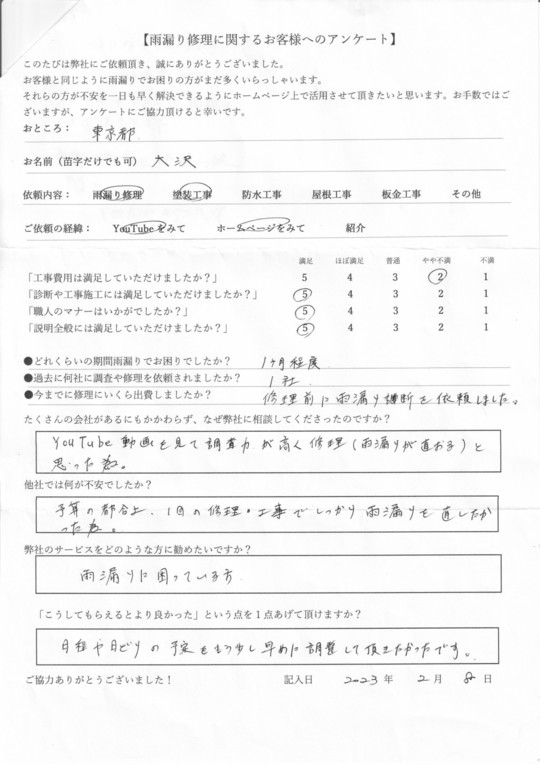 【雨漏り修理に関するお客様へのアンケート】
このたびは弊社にご依頼頂き、誠にありがとうございました。
お客様と同じように雨漏りでお困りの方がまだ多くいらっしゃいます。
それらの方が不安を一日も早く解決できるようにホームページ上で活用させて頂きたいと思います。お手数ではご
ざいますが、アンケートにご協力頂けると幸いです。
おところ： 東京都
お名前（苗字だけでも可） 大沢
依頼内容： 雨漏り修理 塗装工事 防水工事 屋根工事 板金工事 その他
ご依頼の経緯： YouTubeをみて ホームページをみて 紹介
満足 ほぼ満足 普通 やや不満 不満
「工事費用は満足していただけましたか？」 5 4 3 2 1
「診断や工事施工には満足していただけましたか？」 5 4 3 2 1
「職人のマナーはいかがでしたか？」 5 4 3 2 1
「説明全般には満足していただけましたか？」 5 4 3 2 1
●どれくらいの期間雨漏りでお困りでしたか？ 1ヶ月程度
●過去に何社に調査や修理を依頼されましたか？ 1社
●今までに修理にいくら出費しましたか？ 修理前に雨漏り診断を依頼しました。
たくさんの会社があるにもかかわらず、なぜ弊社に相談してくださったのですか？
YouTube動画を見て調査力が高く修理(雨漏りが直おる)と
思った為。
他社では何が不安でしたか？
予算の都合上、1回の修理・工事でしっかり雨漏りを直したか
った為。
弊社のサービスをどのような方に勧めたいですか？
雨漏りに困っている方
「こうしてもらえるとより良かった」という点を１点あげて頂けますか？
日程や日どりの予定をもう少し早めに調整して頂きたかったです。
ご協力ありがとうございました！ 記入日 2023 年 2 月 8 日